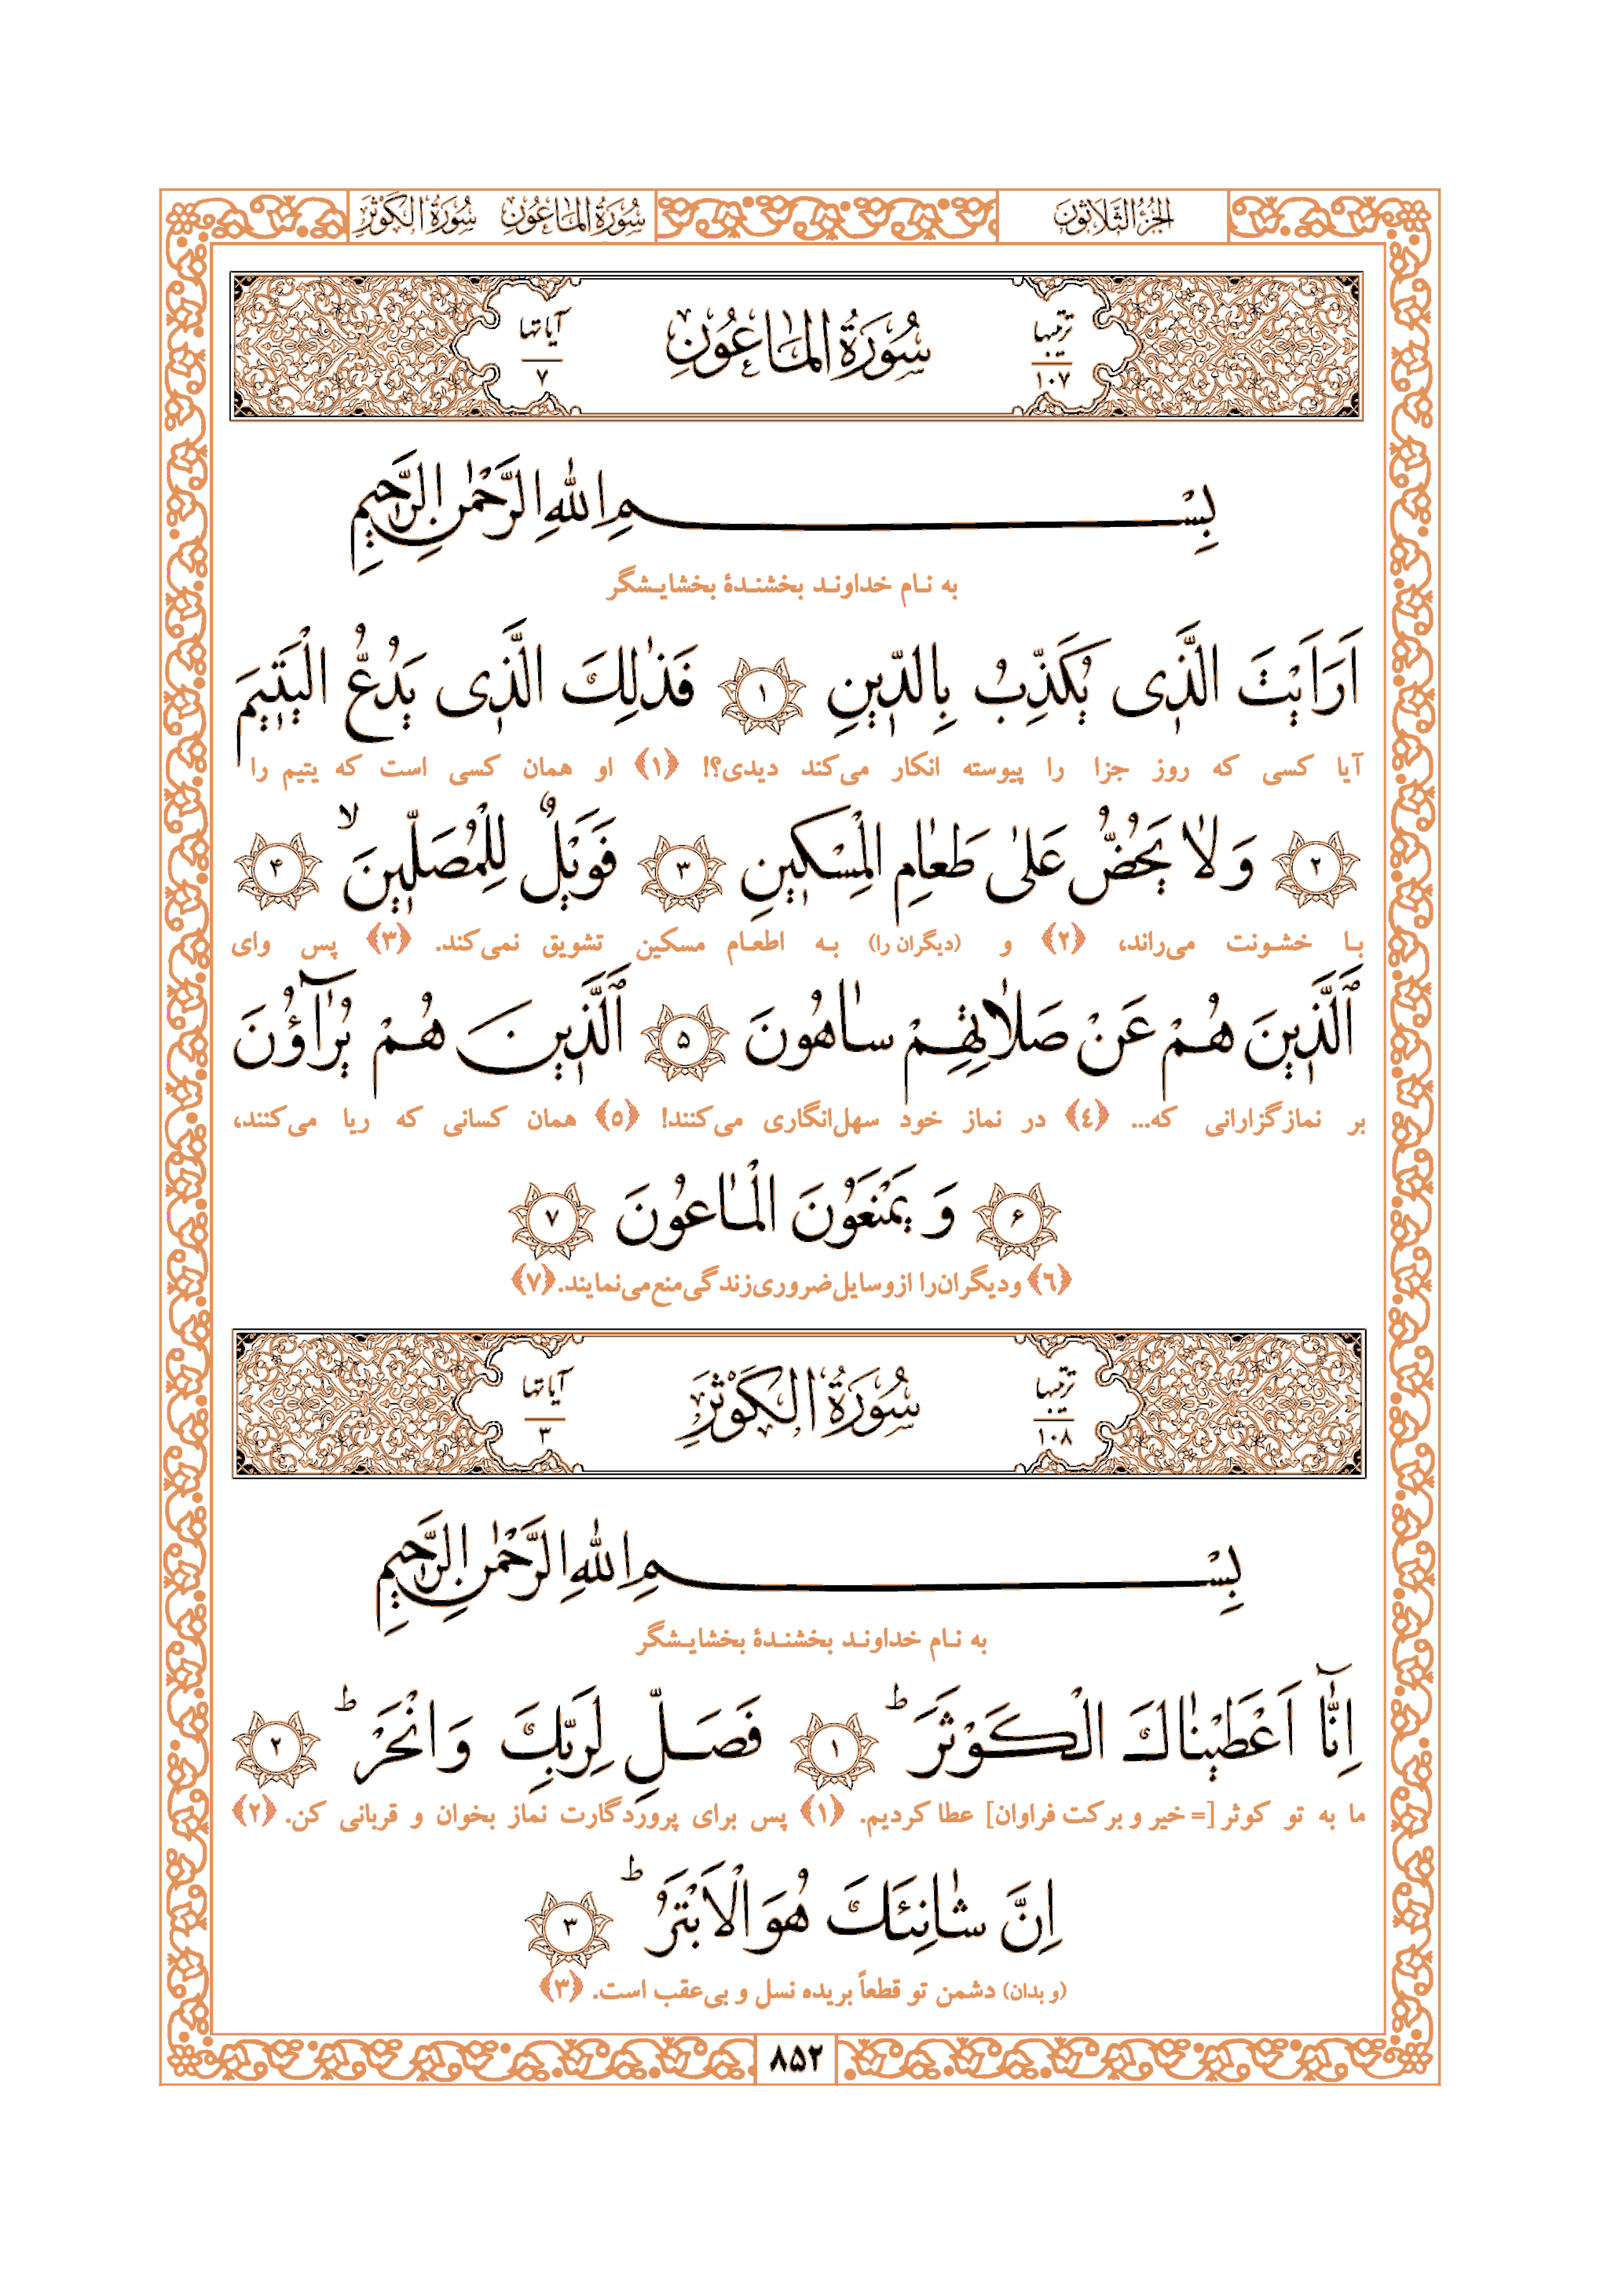 الجزء الثلاثون
سورة الماعون سورة الكوثر
ترتيبها ١٠٧
سُورَةُ الْمَاعُونِ
آياتها ٧
بِسْمِ اللّٰهِ الرَّحْمٰنِ الرَّحِيمِ
به نـام خداونـد بخشنـدهٔ بخشایـشگر
اَرَاَيْتَ الَّذِي يُكَذِّبُ بِالدِّينِ ﴿۱﴾ فَذٰلِكَ الَّذِي يَدُعُّ الْيَتِيمَ
آیا کسی که روز جزا را پیوسته انکار می‌کند دیدی؟! ﴿۱﴾ او همان کسی است که یتیم را
﴿۲﴾ وَلَا يَحُضُّ عَلٰى طَعَامِ الْمِسْكِينِ ﴿۳﴾ فَوَيْلٌ لِلْمُصَلِّينَ ۙ ﴿۴﴾
بـا خشـونت می‌راند، ﴿۲﴾ و (دیگران را) بـه اطعـام مسکین تشویق نمی‌کند. ﴿۳﴾ پس وای
اَلَّذِينَ هُمْ عَنْ صَلَاتِهِمْ سَاهُونَ ﴿۵﴾ اَلَّذِينَ هُمْ يُرَآؤُنَ
بر نمازگزارانی که... ﴿٤﴾ در نماز خود سهل‌انگاری می‌کنند! ﴿٥﴾ همان کسانی که ریا می‌کنند،
﴿۶﴾ وَ يَمْنَعُونَ الْمَاعُونَ ﴿۷﴾
﴿٦﴾ و دیگران را از وسایل ضروری زندگی منع می‌نمایند. ﴿۷﴾
ترتيبها ١٠٨
سُورَةُ الْكَوْثَرِ
آياتها ٣
بِسْمِ اللّٰهِ الرَّحْمٰنِ الرَّحِيمِ
به نـام خداونـد بخشنـدهٔ بخشایـشگر
اِنَّٓا اَعْطَيْنٰاكَ الْكَوْثَرَ ؕ ﴿۱﴾ فَصَلِّ لِرَبِّكَ وَانْحَرْ ؕ ﴿۲﴾
ما به تو کوثر [= خیر و برکت فراوان] عطا کردیم. ﴿۱﴾ پس برای پروردگارت نماز بخوان و قربانی کن. ﴿۲﴾
اِنَّ شَانِئَكَ هُوَ الْاَبْتَرُ ؕ ﴿۳﴾
(و بدان) دشمن تو قطعاً بریده نسل و بی‌عقب است. ﴿۳﴾
۸۵۲